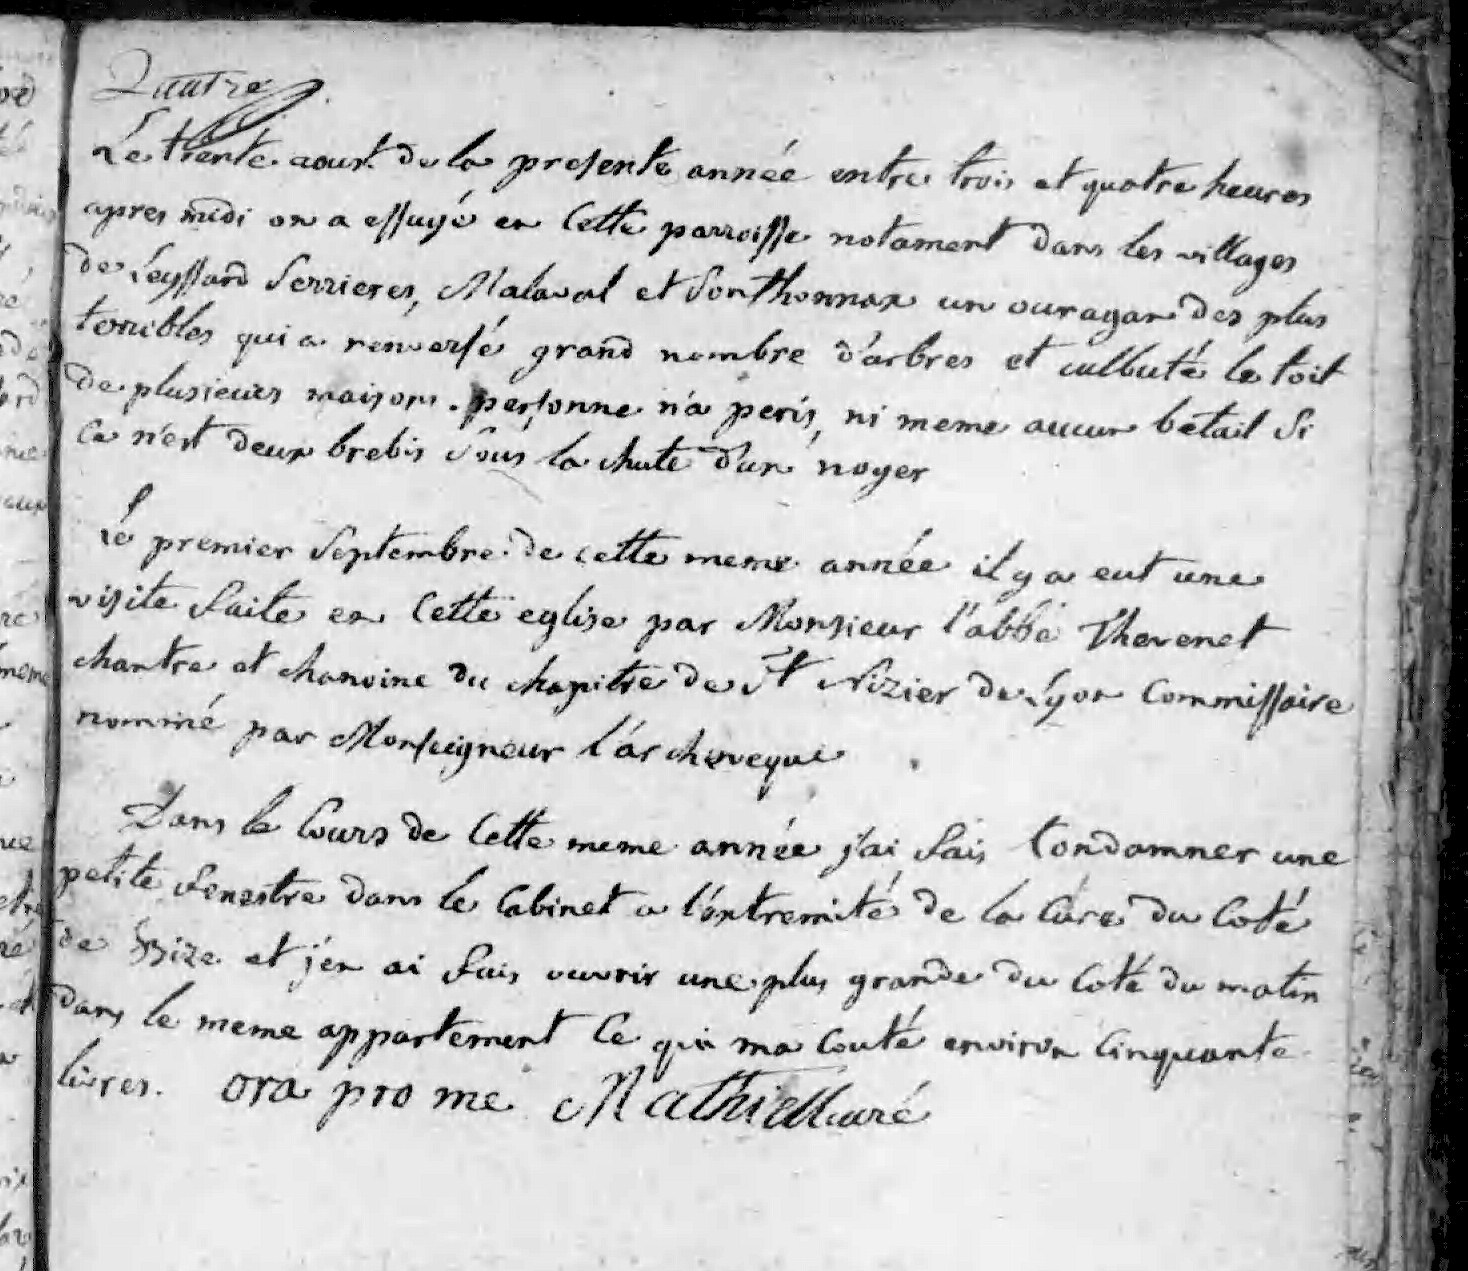 Quatre
Le trente aoust de la presente année entre trois et quatre heures
apres midi on a essuyé en cette parroisse notament dans les villages
de Leyssard Serrieres, Malaval et Sonthonnax un ouragan des plus
terribles qui a renversé grand nombre d'arbres et culbuté le toit
de plusieurs maisons. personne n'a peris, ni meme aucun betail si
ce n'est deux brebis sous la chute d'un noyer
Le premier septembre de cette meme année il y a eut une
visite faite en cette eglise par Monsieur l'abbé Thevenet
chantre et chanoine du chapitre de St Nizier de Lyon Commissaire
nommé par Monseigneur l'archeveque
Dans le cours de cette meme année j'ai fais condamner une
petite fenestre dans le cabinet a l'extremité de la cure du coté
de Bize et j'en ai fais ouvrir une plus grande du coté du matin
dans le meme appartement ce qui ma couté environ cinquante
livres. ora pro me Mathieu curé